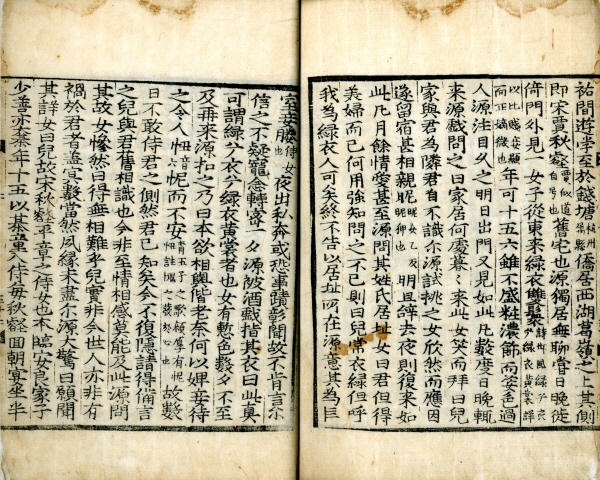 祐間遊學至於錢塘杭州屬縣僑居西湖葛嶺之上其側
即宋賈秋壑賈似道自号也舊宅也源獨居無聊嘗日晚徙
倚門外見一女子從東來綠衣雙鬟詩邶風綠兮衣兮綠衣黃裳詳
以比賤妾顯而正嫡微也年可十五六雖不盛粧濃飾而姿色過
人源注目久之明日出門又見如此凡數度日晚輒
來源戲問之曰家居何處暮〻來此女笑而拜曰兒
家與君為隣君自不識尔源試挑之女欣然而應因
遂留宿甚相親昵昵女乙反昵狎也明旦辞去夜則復來如
此凡月餘情愛甚至源問其姓氏居址女曰君但得
美婦而已何用強知問之不已則曰兒常衣綠但呼
我為綠衣人可矣終不告以居址所在源意其為巨
室妾媵侍女夜出私奔或恐事蹟彰聞故不肯言尔
信之不疑寵念轉密一夕源被酒戲指其衣曰此真
可謂綠兮衣兮綠衣黃裳者也女有慙色數夕不至
及再來源扣之乃曰本欲相與偕老奈何以婢妾待
之令人忸怩而不安故數
日不敢侍君之側然君已知矣今不復隱請得備言
之兒與君舊相識也今非至情相感莫能及此源問
其故女慘然曰得無相難乎兒實非今世人亦非有
禍於君者盖冥數當然夙緣未盡尔源大驚曰願聞
其詳女曰兒故宋秋壑平章之侍女也本臨安良家子
少善弈棊年十五以棊童入侍每秋壑回朝宴坐半